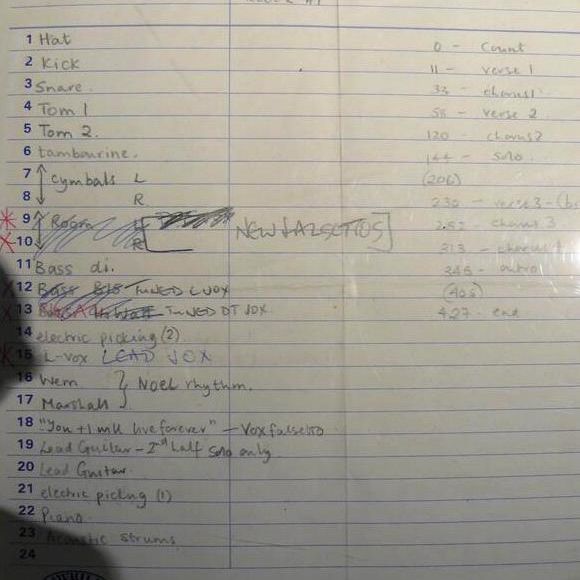 1 Hat
2 Kick
3 Snare.
4 Tom 1
5 Tom 2.
6 tambourine.
7 Cymbals L
8 R
9 Room L
NEW FALSETTOS
10 R
11 Bass di.
12 Bass TUNED L VOX
13 TUNED DT VOX
14 electric picking (2)
15 L-vox LEAD VOX
16 Wem
Noel rhythm.
17 Marshall
18 "You + I will live forever" - Vox falsetto
19 Lead Guitar - 2nd half solo only
20 Lead Guitar.
21 electric picking (1)
22 Piano.
23 Acoustic strums
24
0 - Count
11 - verse 1
33 - chorus 1
58 - verse 2
120 - chorus 2
144 - solo.
(206)
230 - verse 3 -
252 - chorus 3
313 - chorus
346 - outro
(403)
427 - end